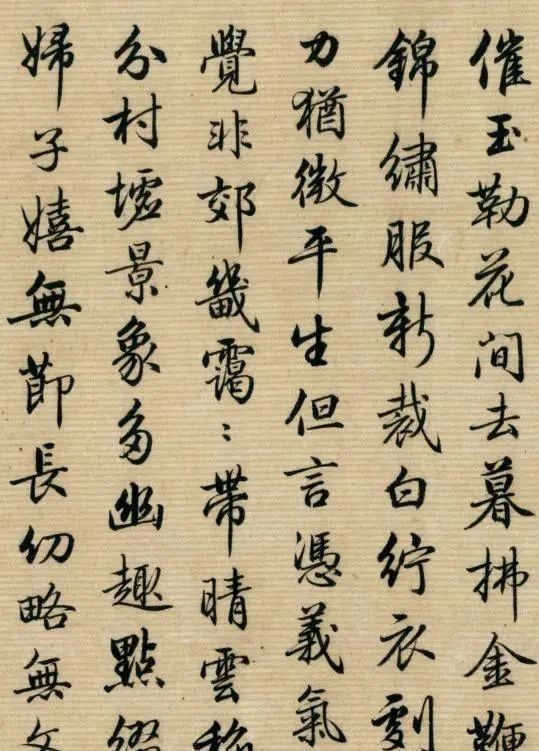 催玉勒花间去暮拂金鞭
錦繡服新裁白紵衣劉
力猶微平生但言憑義氣
覺非郊畿靄〻帶晴雲稀
分村墟景象多幽趣點綴
婦子嬉無節長幼略無文